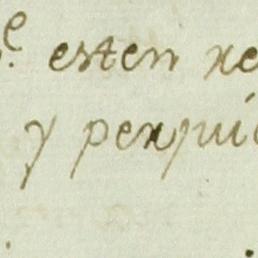 e esten re
y perjui